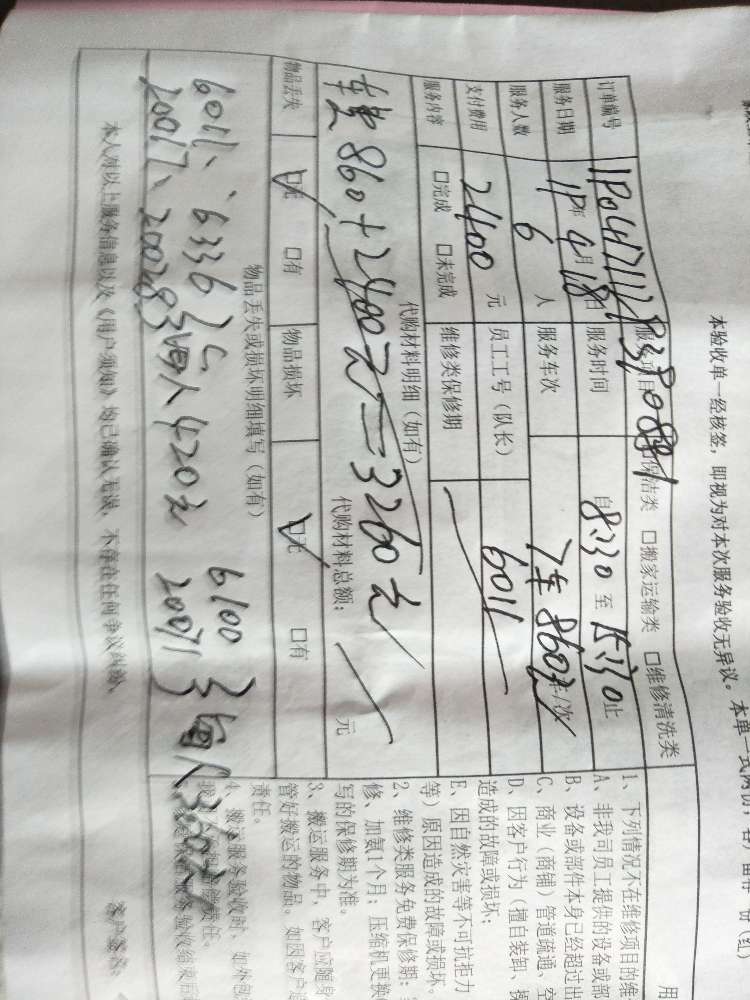 本验收单一经核签，即视为对本次服务验收无异议。本单一式两份，客户留存一份（红）
订单编号
服务项目 保洁类 □搬家运输类 □维修清洗类
服务日期 19年 4月18日 服务时间 自8:30 至 15:30止
服务人数 6 人 服务车次 7车 860元 车/次
支付费用 2400 元 员工工号（队长） 6011
服务内容 □完成 □未完成 维修类保修期
代购材料明细（如有）
车费 860+2400元=3260元
代购材料总额： 元
物品丢失 □无 □有 物品损坏 □无 □有
物品丢失或损坏明细填写（如有）
6011、6336 每人420元
20017、20028
6100
20071 每人360元
本人对以上服务信息以及《用户须知》均已确认无误，不存在任何争议纠纷。
客户签名：
用
1、下列情况不在维修项目的维
A、非我司员工提供的设备或部
B、设备或部件本身已经超过出
C、商业（商铺）管道疏通、空
D、因客户行为（擅自装卸、模
造成的故障或损坏；
E、因自然灾害等不可抗拒力
等）原因造成的故障或损坏。
2、维修类服务免费保修期：
修、加氨1个月；压缩机更换
写的保修期为准。
3、搬运服务中，客户应随身
管好搬运的物品。如因客户
责任。
4、搬运服务验收时，如外包